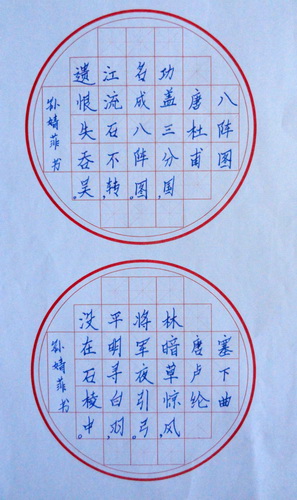 八阵图
唐杜甫
功盖三分国，
名成八阵图。
江流石不转，
遗恨失吞吴。
孙婧菲书
塞下曲
唐卢纶
林暗草惊风，
将军夜引弓。
平明寻白羽，
没在石棱中。
孙婧菲书